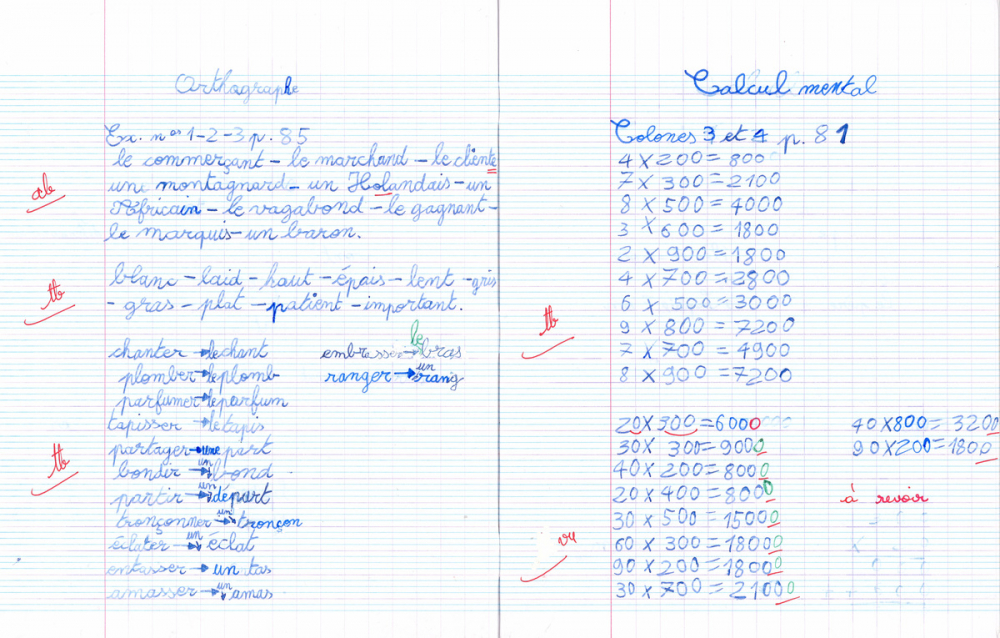 Orthographe
Ex. nos 1-2-3 p. 85
le commerçant - le marchand - le cliente
une montagnard - un Holandais - un
Africain - le vagabond - le gagnant -
le marquis - un baron.
ab
blanc - laid - haut - épais - lent - gris
- gras - plat - patient - important.
tb
chanter → le chant
plomber → le plomb
parfumer → le parfum
tapisser → le tapis
partager → une part
bondir → un bond
partir → un départ
tronçonner → un tronçon
éclater → un éclat
entasser → un tas
amasser → un amas
tb
embrasser → le bras
ranger → un rang
Calcul mental
Colones 3 et 4 p. 81
4 x 200 = 800
7 x 300 = 2100
8 x 500 = 4000
3 x 600 = 1800
2 x 900 = 1800
4 x 700 = 2800
6 x 500 = 3000
9 x 800 = 7200
7 x 700 = 4900
8 x 900 = 7200
tb
20 x 300 = 6000
30 x 300 = 9000
40 x 200 = 8000
20 x 400 = 8000
30 x 500 = 15000
60 x 300 = 18000
90 x 200 = 18000
30 x 700 = 21000
vu
40 x 800 = 3200
90 x 200 = 1800
à revoir